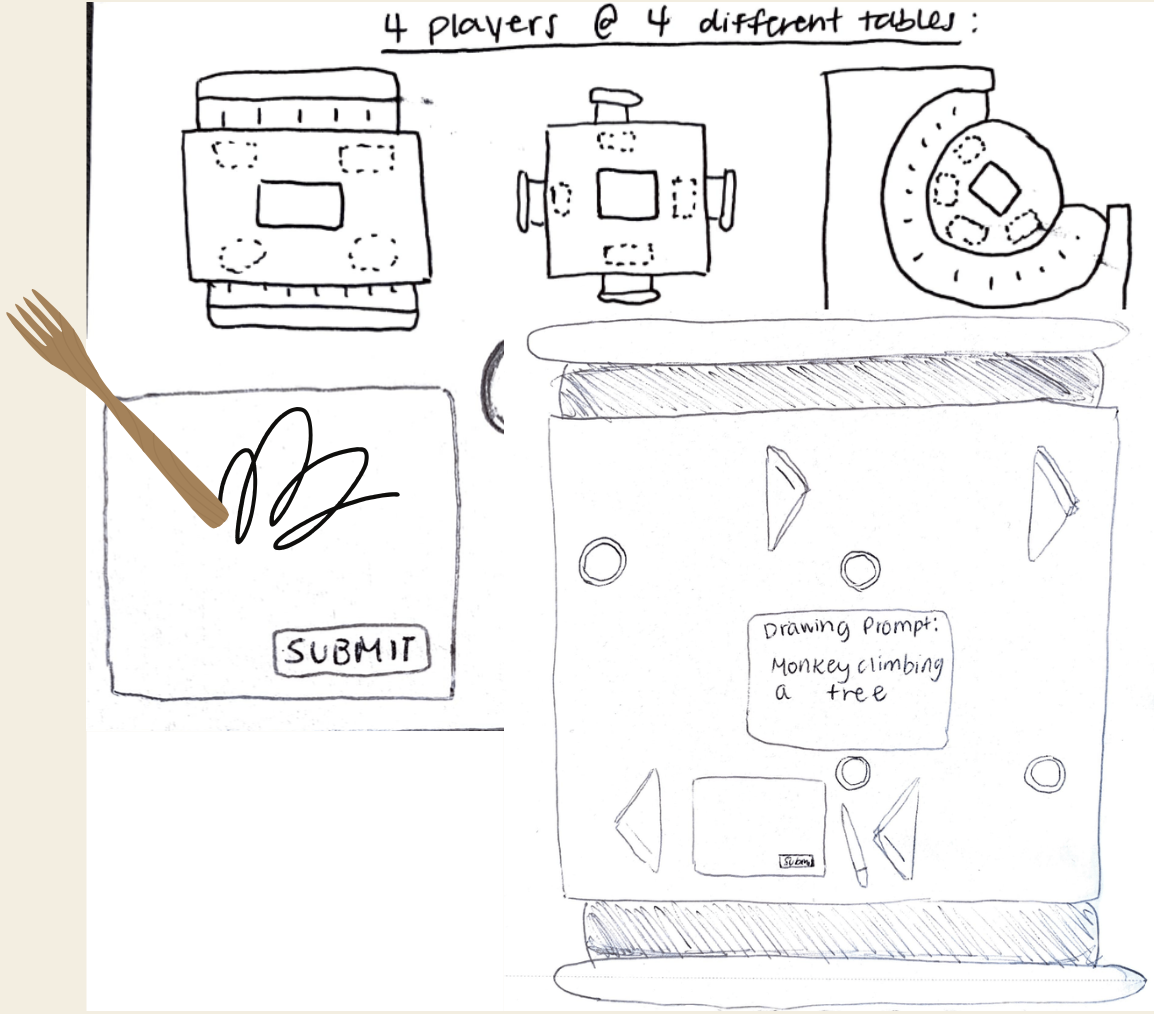 4 players @ 4 different tables:
SUBMIT
Drawing Prompt:
Monkey climbing
a tree
Submit